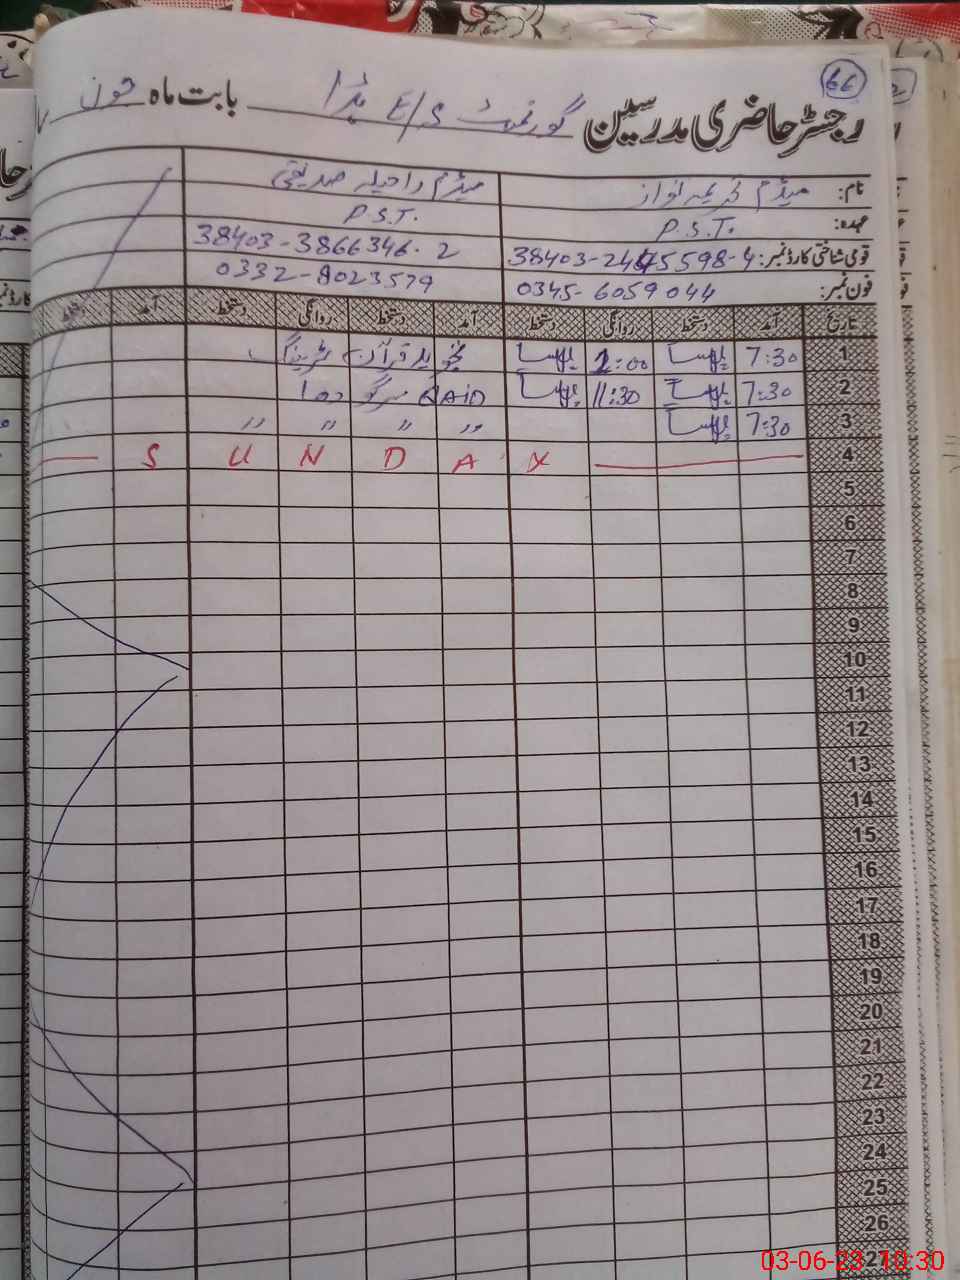 66
رجسٹر حاضری مدرسین گورنمنٹ E/S بابت ماہ جون
نام: میڈم نواز میڈم راحیلہ صدیقی
عہدہ: P.S.T. P.S.T.
قومی شناختی کارڈ نمبر: 38403-2445598-4 38403-3866346-2
فون نمبر: 0345-6059044 0332-8023579
تاریخ آمد دستخط روانگی دستخط آمد دستخط روانگی دستخط آمد دستخط
1 7:30 2:00 تجوید القرآن ٹریننگ
2 7:30 11:30 QAID سرگودھا
3 7:30 〃 〃 〃 〃
4 S U N D A Y
5
6
7
8
9
10
11
12
13
14
15
16
17
18
19
20
21
22
23
24
25
26
27
03-06-23 10:30